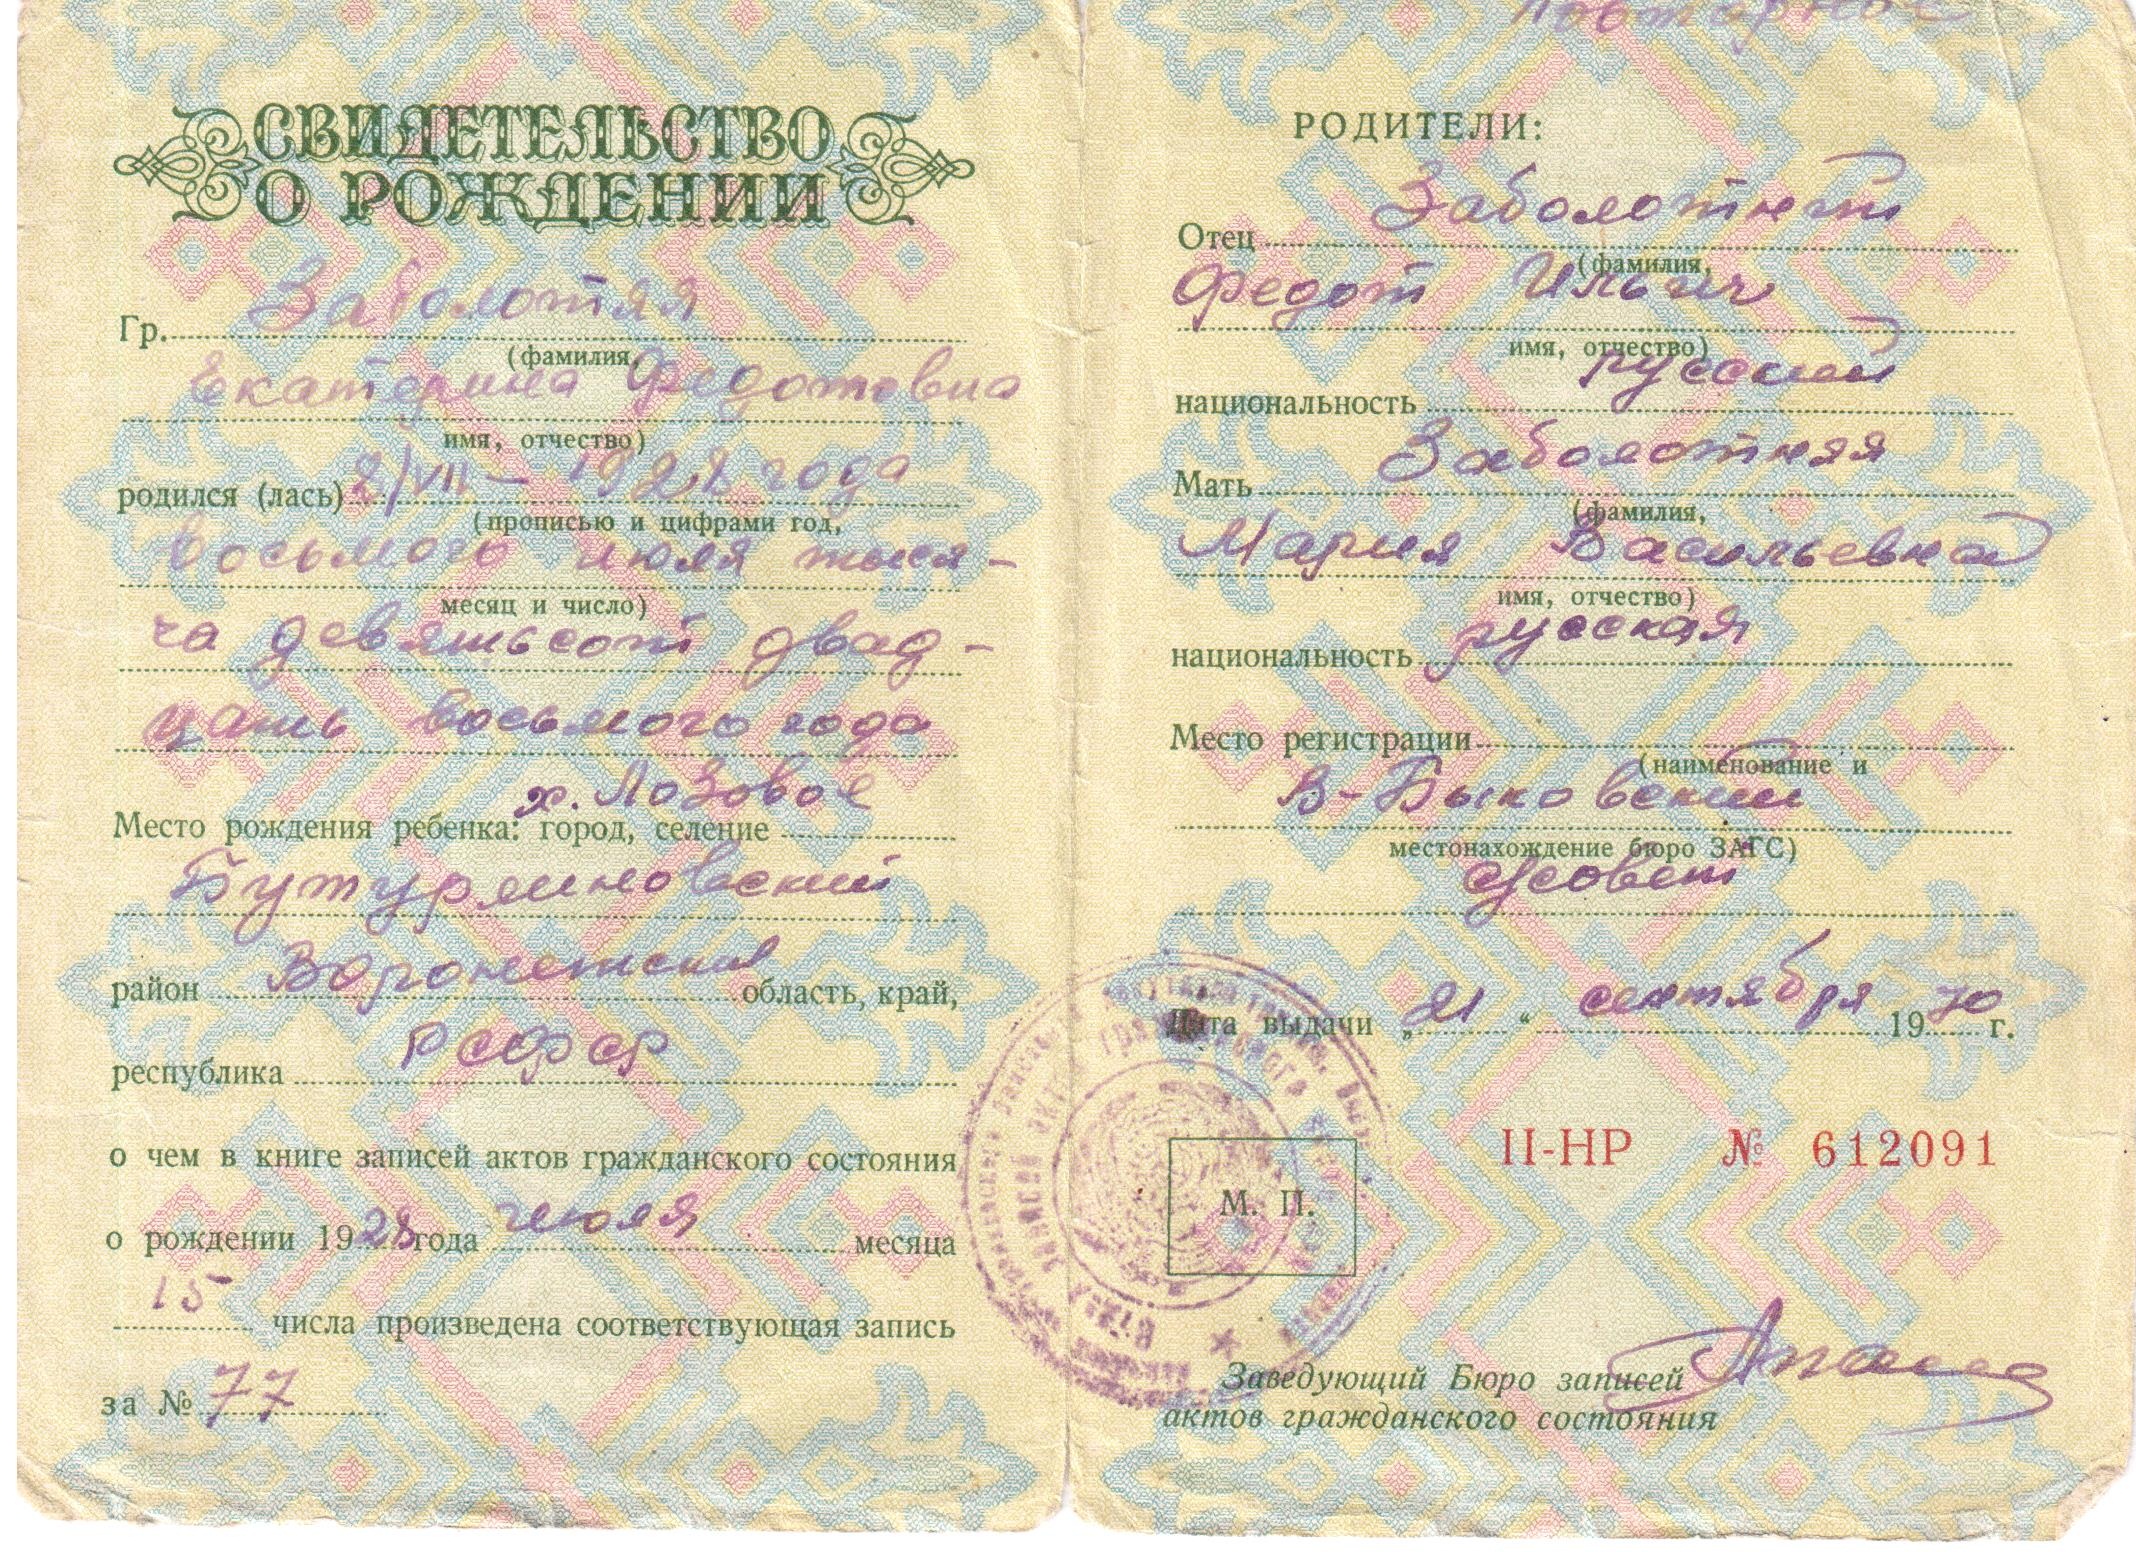 СВИДЕТЕЛЬСТВО
О РОЖДЕНИИ
Гр. Заболотняя
(фамилия,
Екатерина Федотовна
имя, отчество)
родился (лась) 8/VII – 1928 года
(прописью и цифрами год,
восьмого июля тыся-
месяц и число)
ча девятьсот двад-
цать восьмого года
х. Лозовое
Место рождения ребенка: город, селение
Бутурлиновский
район Воронежская область, край,
республика РСФСР
о чем в книге записей актов гражданского состояния
о рождении 1928 года июля месяца
15 числа произведена соответствующая запись
за № 77
Повторное
РОДИТЕЛИ:
Отец Заболотний
(фамилия,
Федот Ильич
имя, отчество)
национальность русский
Мать Заболотняя
(фамилия,
Мария Васильевна
имя, отчество)
национальность русская
Место регистрации
(наименование и
В-Быковский
местонахождение бюро ЗАГС)
с/совет
Дата выдачи „21“ сентября 1970 г.
II-НР № 612091
М. П.
Заведующий Бюро записей
актов гражданского состояния